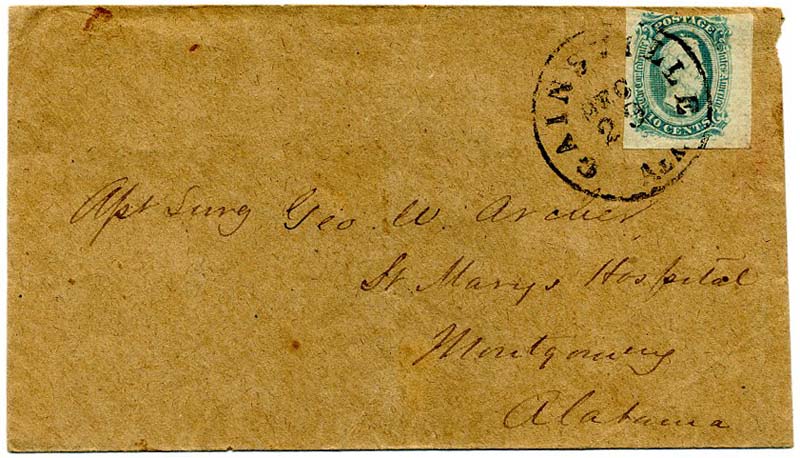 POSTAGE
The Confederate States of America
10 CENTS
GAINSVILLE
DEC
Apt Surg Geo. W. Archer
St Marys Hospital
Montgomery
Alabama